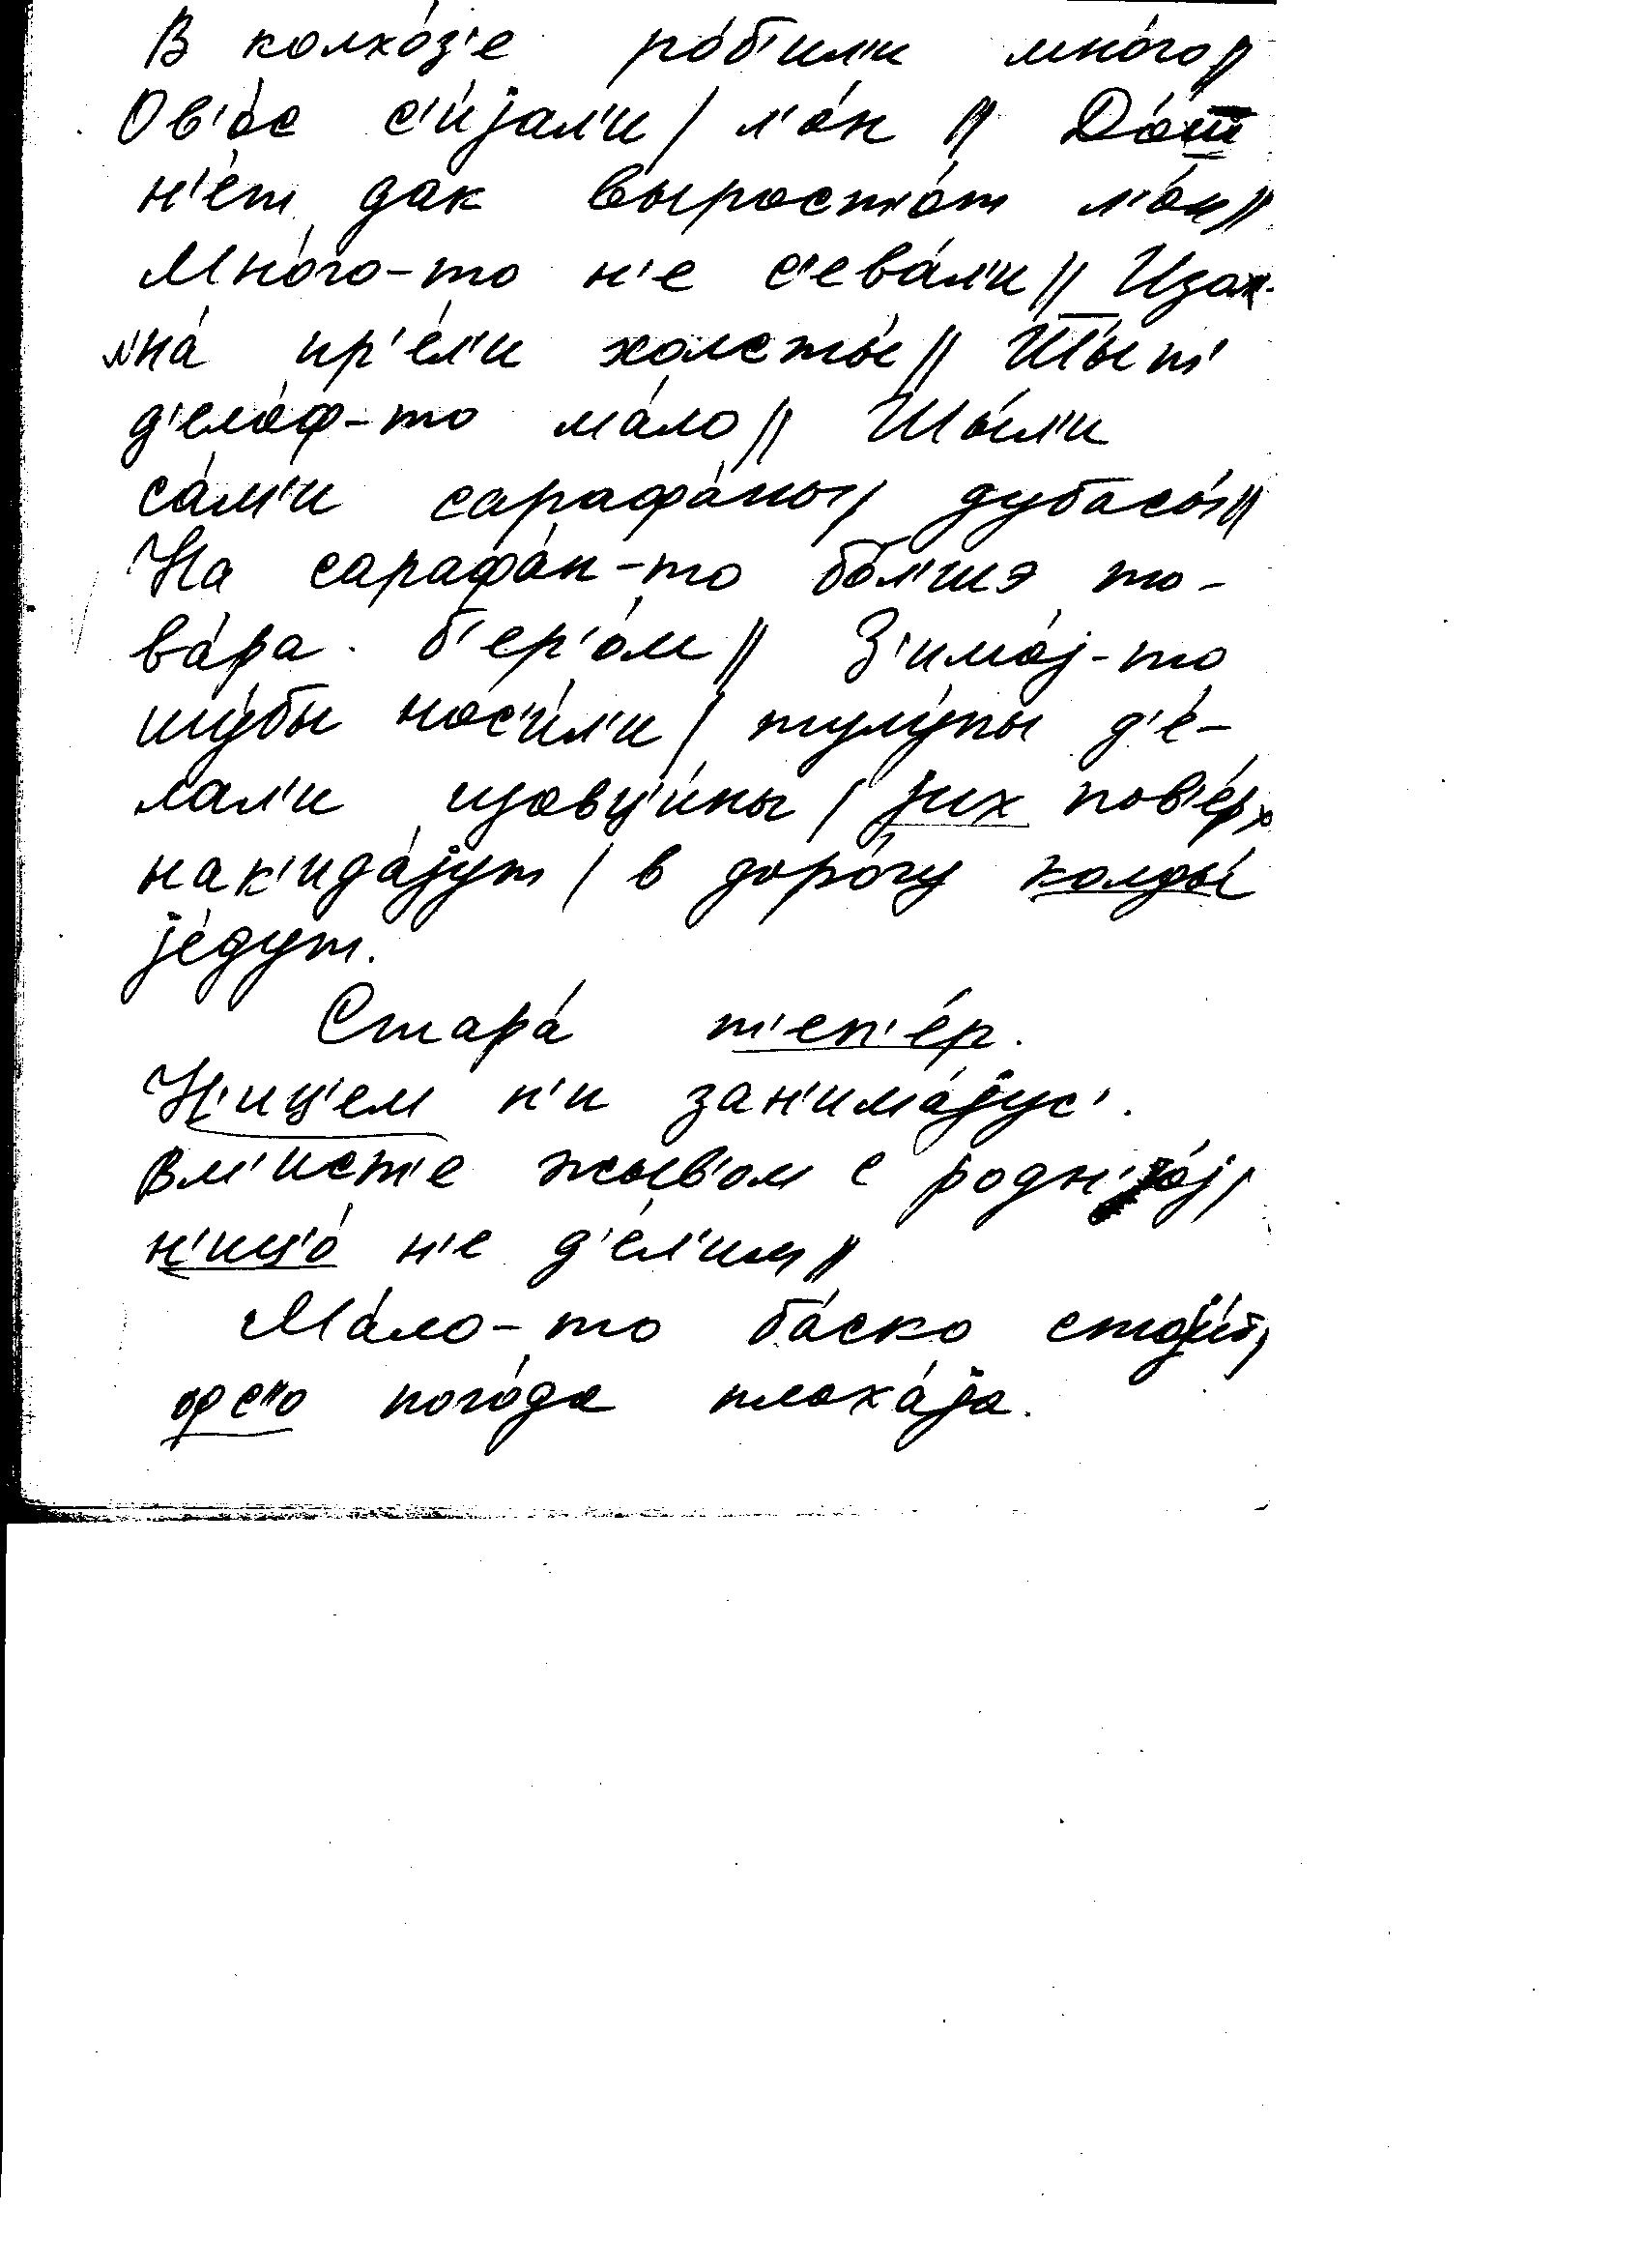 В колхо́з'е ро́б'ил'и мно́го//
Ов'о́с с'и́jал'и / л'о́н // До́ш
н'е́т дак вы́раст'от л'о́н//
Мно́го-то н'е с'ева́л'и// Изо
л'на́ пр'е́л'и холсты́// Шы́т'
д'ело́ф-то ма́ло// Шы́л'и
са́м'и сарафа́ны/ дубасы́//
На сарафа́н-то бо́л'шэ то-
ва́ра б'ер'о́м// З'имо́j-то
шу́бы нос'и́л'и / тулу́пы д'е́-
лал'и и́овц'и́ны / jих пов'е́рх
нак'ида́jут / в доро́гу колды́
jе́дут.
Стара́ т'еп'е́р.
Н'иц'ем н'и зан'има́jус'.
Вм'ист'е жыв'ом с родн'jо́j/
н'иц'о́ н'е д'е́л'им//
Ма́ло-то ба́ско стоjи́т/
фс'о пого́да плоха́jа.